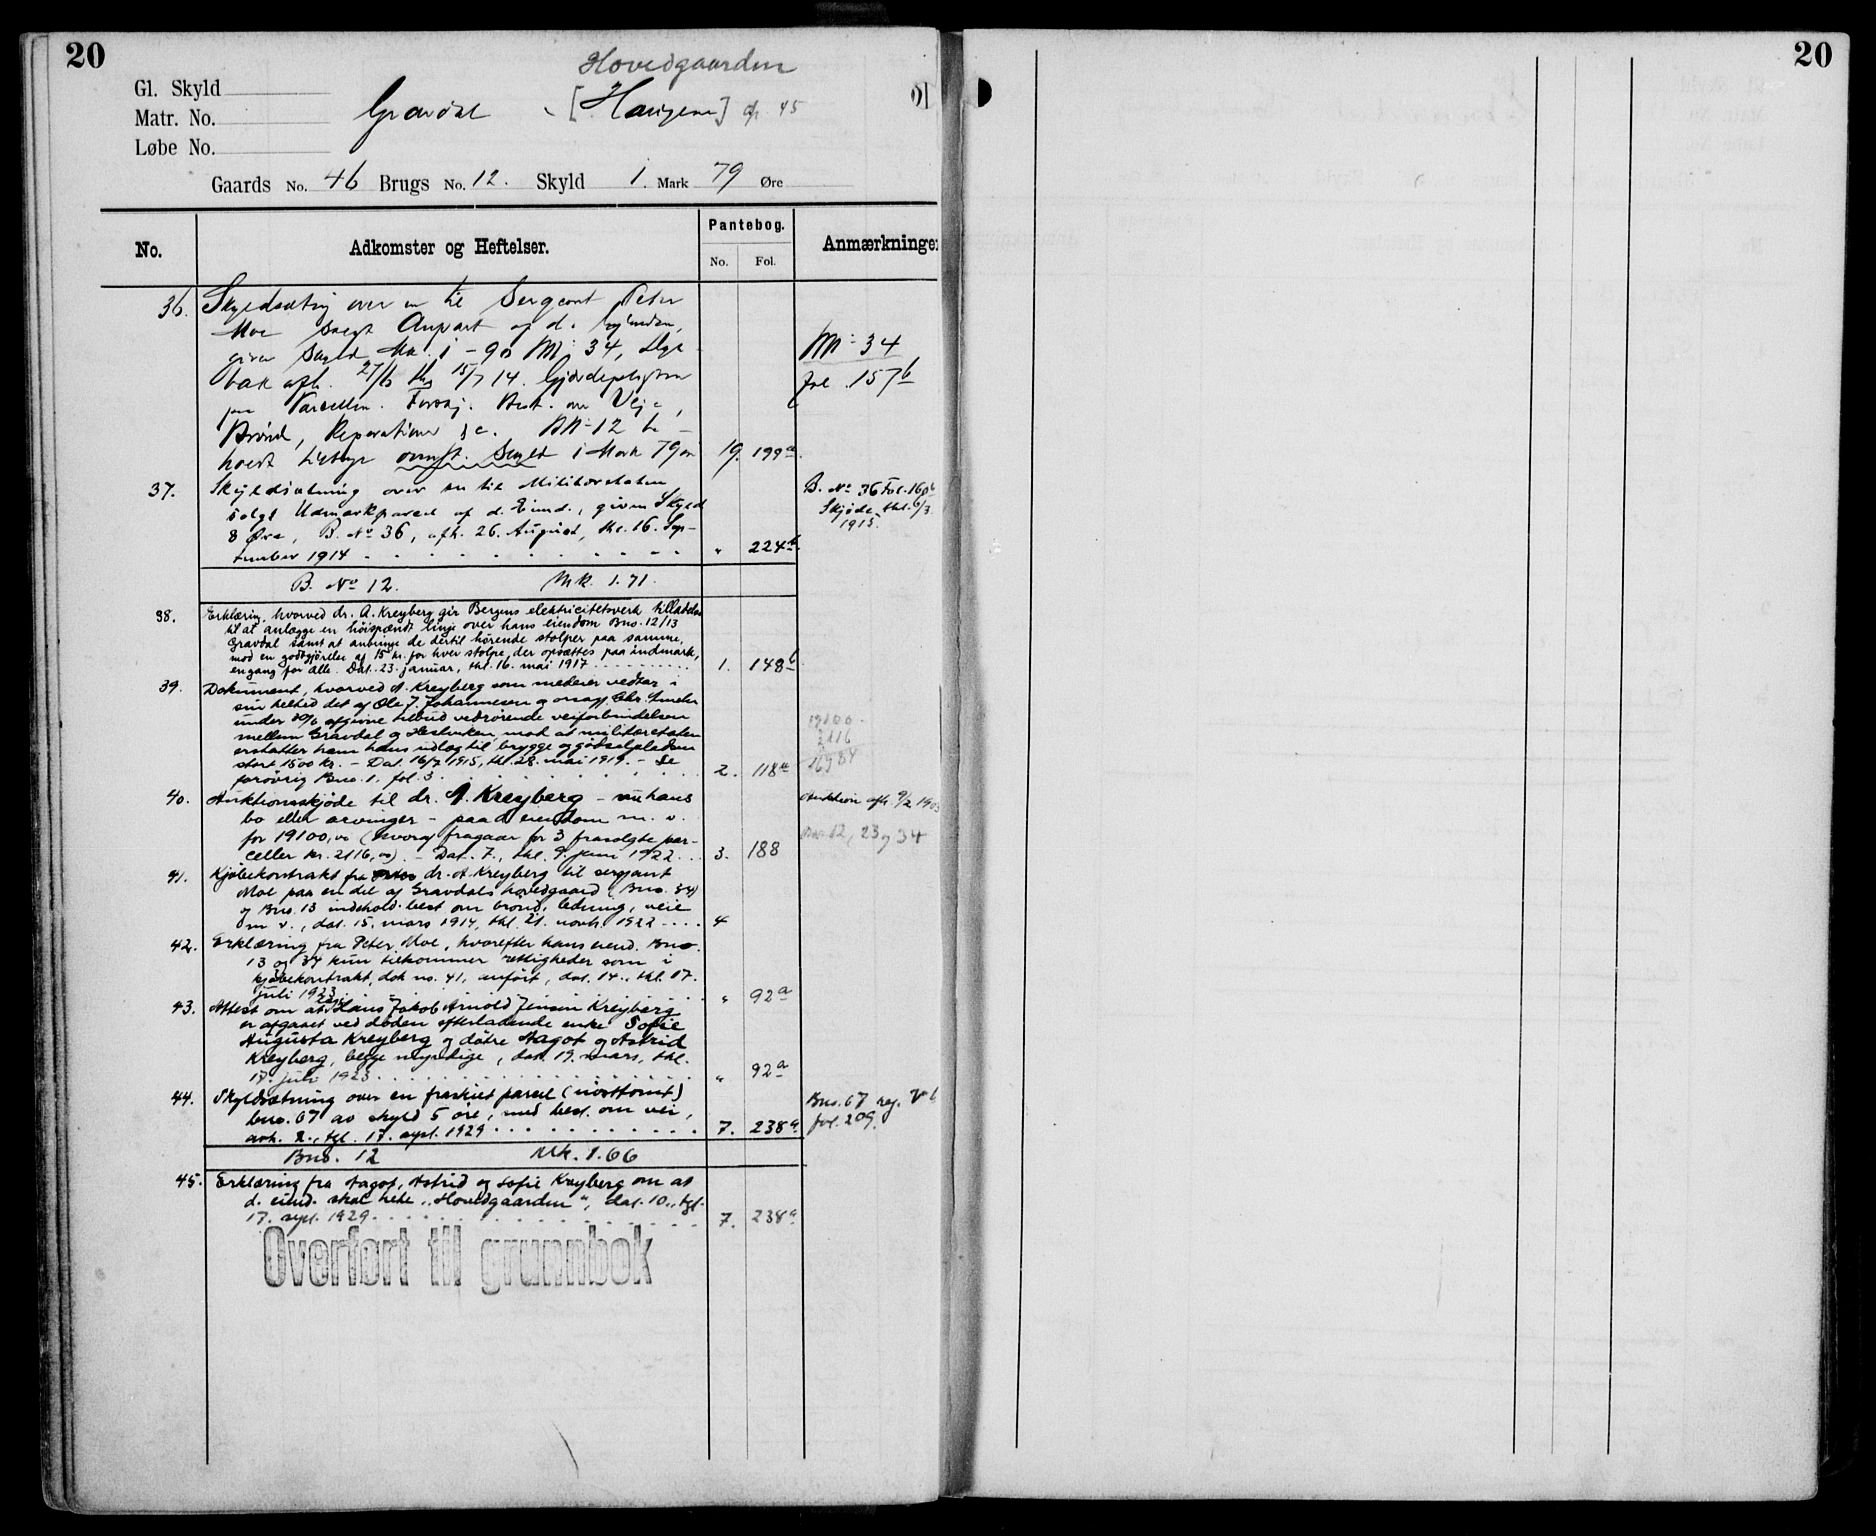 20
20
Hovedgaarden
Gl. Skyld
Matr. No.
Gravdal [Haugene] cfr 45
Løbe No.
Gaards No. 46 Brugs No. 12. Skyld 1 Mark 79 Øre
No.
Adkomster og Heftelser.
Pantebog.
No. Fol.
Anmærkninger
36. Skyldsætnig over en til Sergeant Peter
Moe solgt Anpart af d.
given Skyld Mk. 1-90 34,
afh. 27/6 thl 15/7 14. Gjærdepligten
paa Parcellen. Forøvr. Best. om Veje,
Brønd, Reparationer &c. 12 be-
Skyld 1 Mark 79 øre 19. 199a
34
fol. 157b
37. Skyldsætning over en til Militæretaten
solgt Udmarksparcel af d. Eiend., given Skyld
8 Øre, B. No 36, afh. 26. August, thl. 16. Sep-
tember 1914 " 224b
B. No 36 Fol. 160b
Skjøde thl. 6/3
1915.
B. No 12. Mk. 1.71.
38. Erklæring, hvorved dr. A. Kreyberg gir Bergens elektricitetsverk tilladelse
til at anlægge en høispændt linje over hans eiendom Bno. 12/13
Gravdal samt at anbringe de dertil hørende stolper paa samme,
mod en godtgjørelse af 15 kr. for hver stolpe, der opsættes paa indmark,
engang for alle. Dat. 23. januar, thl. 16. mai 1917 1. 148b
39. Dokument, hvorved A. Kreyberg som medeier vedtar i
sin helhed det af Ole J. Johannesen og Chr.
under afgivne tilbud vedrørende veiforbindelsen
mellem Gravdal og mod at militæretaten
erstatter ham hans udlæg til brygge og
stort 1500 kr. - Dat. 16/7 1915, thl. 28. mai 1919. - Se
forøvrig Bno. 1, fol. 3. 2. 118a
19100
2116
16984
40. Auktionsskjøde til dr. A. Kreyberg - nu hans
bo eller arvinger - paa d. eiendom m. v.
for 19100,00 (hvoraf fragaar for 3 frasolgte par-
celler kr. 2116,00). - Dat. 7., thl. 9. juni 1922 3. 188
Auktion afh. 9/2 1903
Bno. 12, 23 og 34
41. Kjøbekontrakt fra dr. A. Kreyberg til sergeant
Moe paa en del af Gravdals hovedgaard (Bno. 34)
og Bno. 13 indehold. best. om brønd, ledning, veie
m v., dat. 15. mars 1914, thl. 21. novb. 1922 4
42. Erklæring fra Peter Moe, hvorefter hans eiend. Bno.
13 og 34 kun tilkommer rettigheder som i
kjøbekontrakt, dok no. 41, anført, dat. 14., thl. 17.
juli 1923 " 92a
43. Attest om at Hans Jakob Arnold Jensen Kreyberg
er afgaaet ved døden efterladende enke Sofie
Augusta Kreyberg og døtre Aagot og Astrid
Kreyberg, begge myndige, dat. 19. mars, thl.
17. juli 1923 " 92a
44. Skyldsætning over en fraskilt parcel (nosttomt)
bno. 67 av skyld 5 øre, med best. om vei,
avh. 2., tgl. 17. sept. 1929 7. 238a
Bno. 67 reg. V b
fol. 209.
Bno. 12 Mk. 1.66
45. Erklæring fra Aagot, Astrid og Sofie Kreyberg om at
d. eiend. skal hete "Hovedgaarden", dat. 10., tgl.
17. sept. 1929 7. 238a
Overført til grunnbok